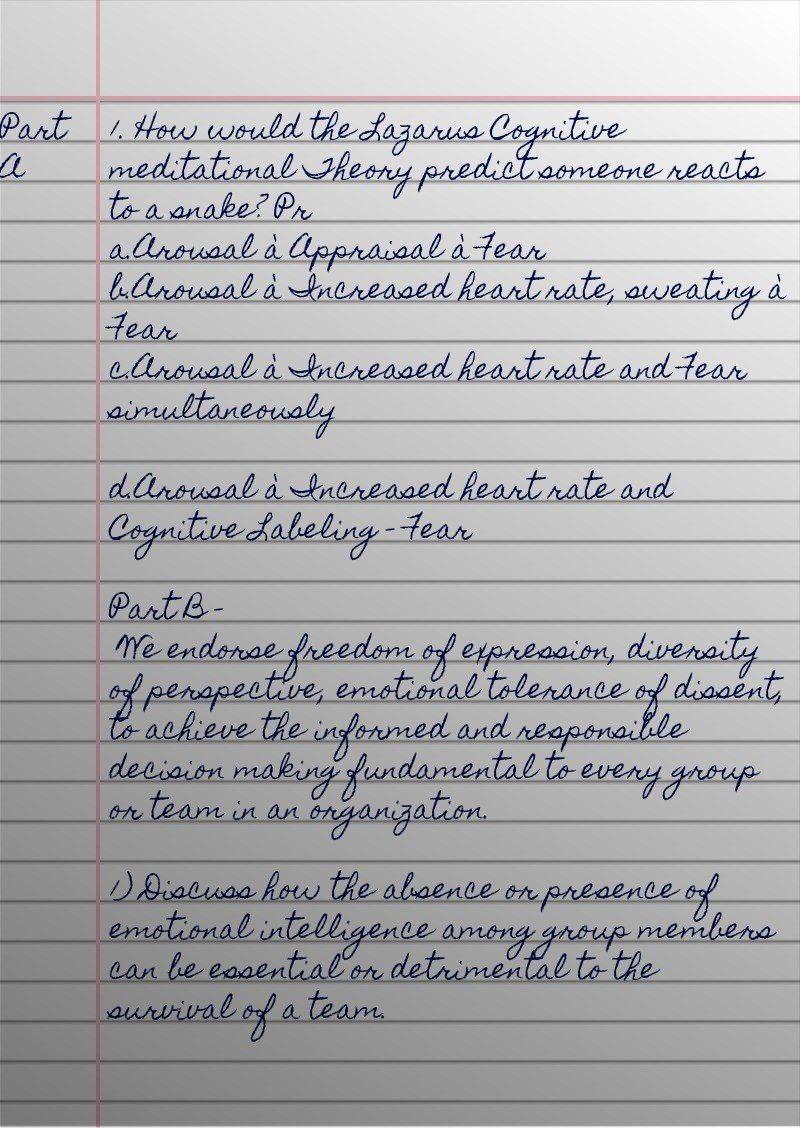 Part
A
1. How would the Lazarus Cognitive
meditational Theory predict someone reacts
to a snake? Pr
a.Arousal à Appraisal à Fear
b.Arousal à Increased heart rate, sweating à
Fear
c.Arousal à Increased heart rate and Fear
simultaneously
d.Arousal à Increased heart rate and
Cognitive Labeling - Fear
Part B -
We endorse freedom of expression, diversity
of perspective, emotional tolerance of dissent,
to achieve the informed and responsible
decision making fundamental to every group
or team in an organization.
1) Discuss how the absence or presence of
emotional intelligence among group members
can be essential or detrimental to the
survival of a team.